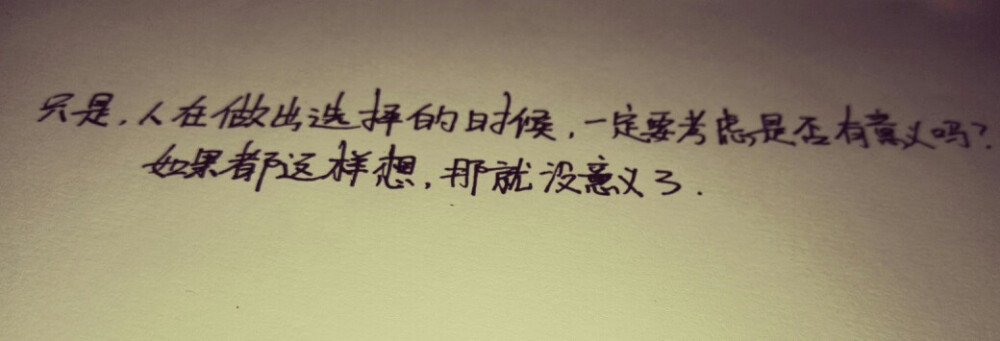 只是，人在做出选择的时候，一定要考虑是否有意义吗？
如果都这样想，那就没意义了.